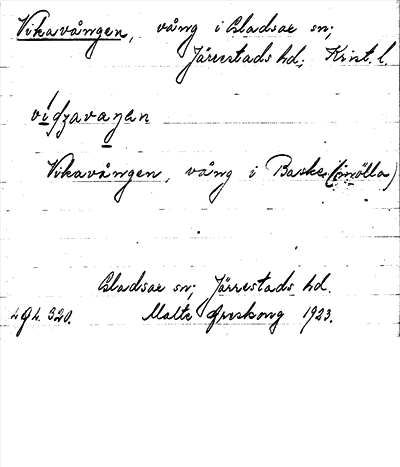 Vikavången, vång i Gladsax sn;
Järrestads hd; Krist. l.
Vikavången, vång i Baske(mölla)
Gladsax sn; Järrestads hd.
494. 320. Malte Areskoug 1923.